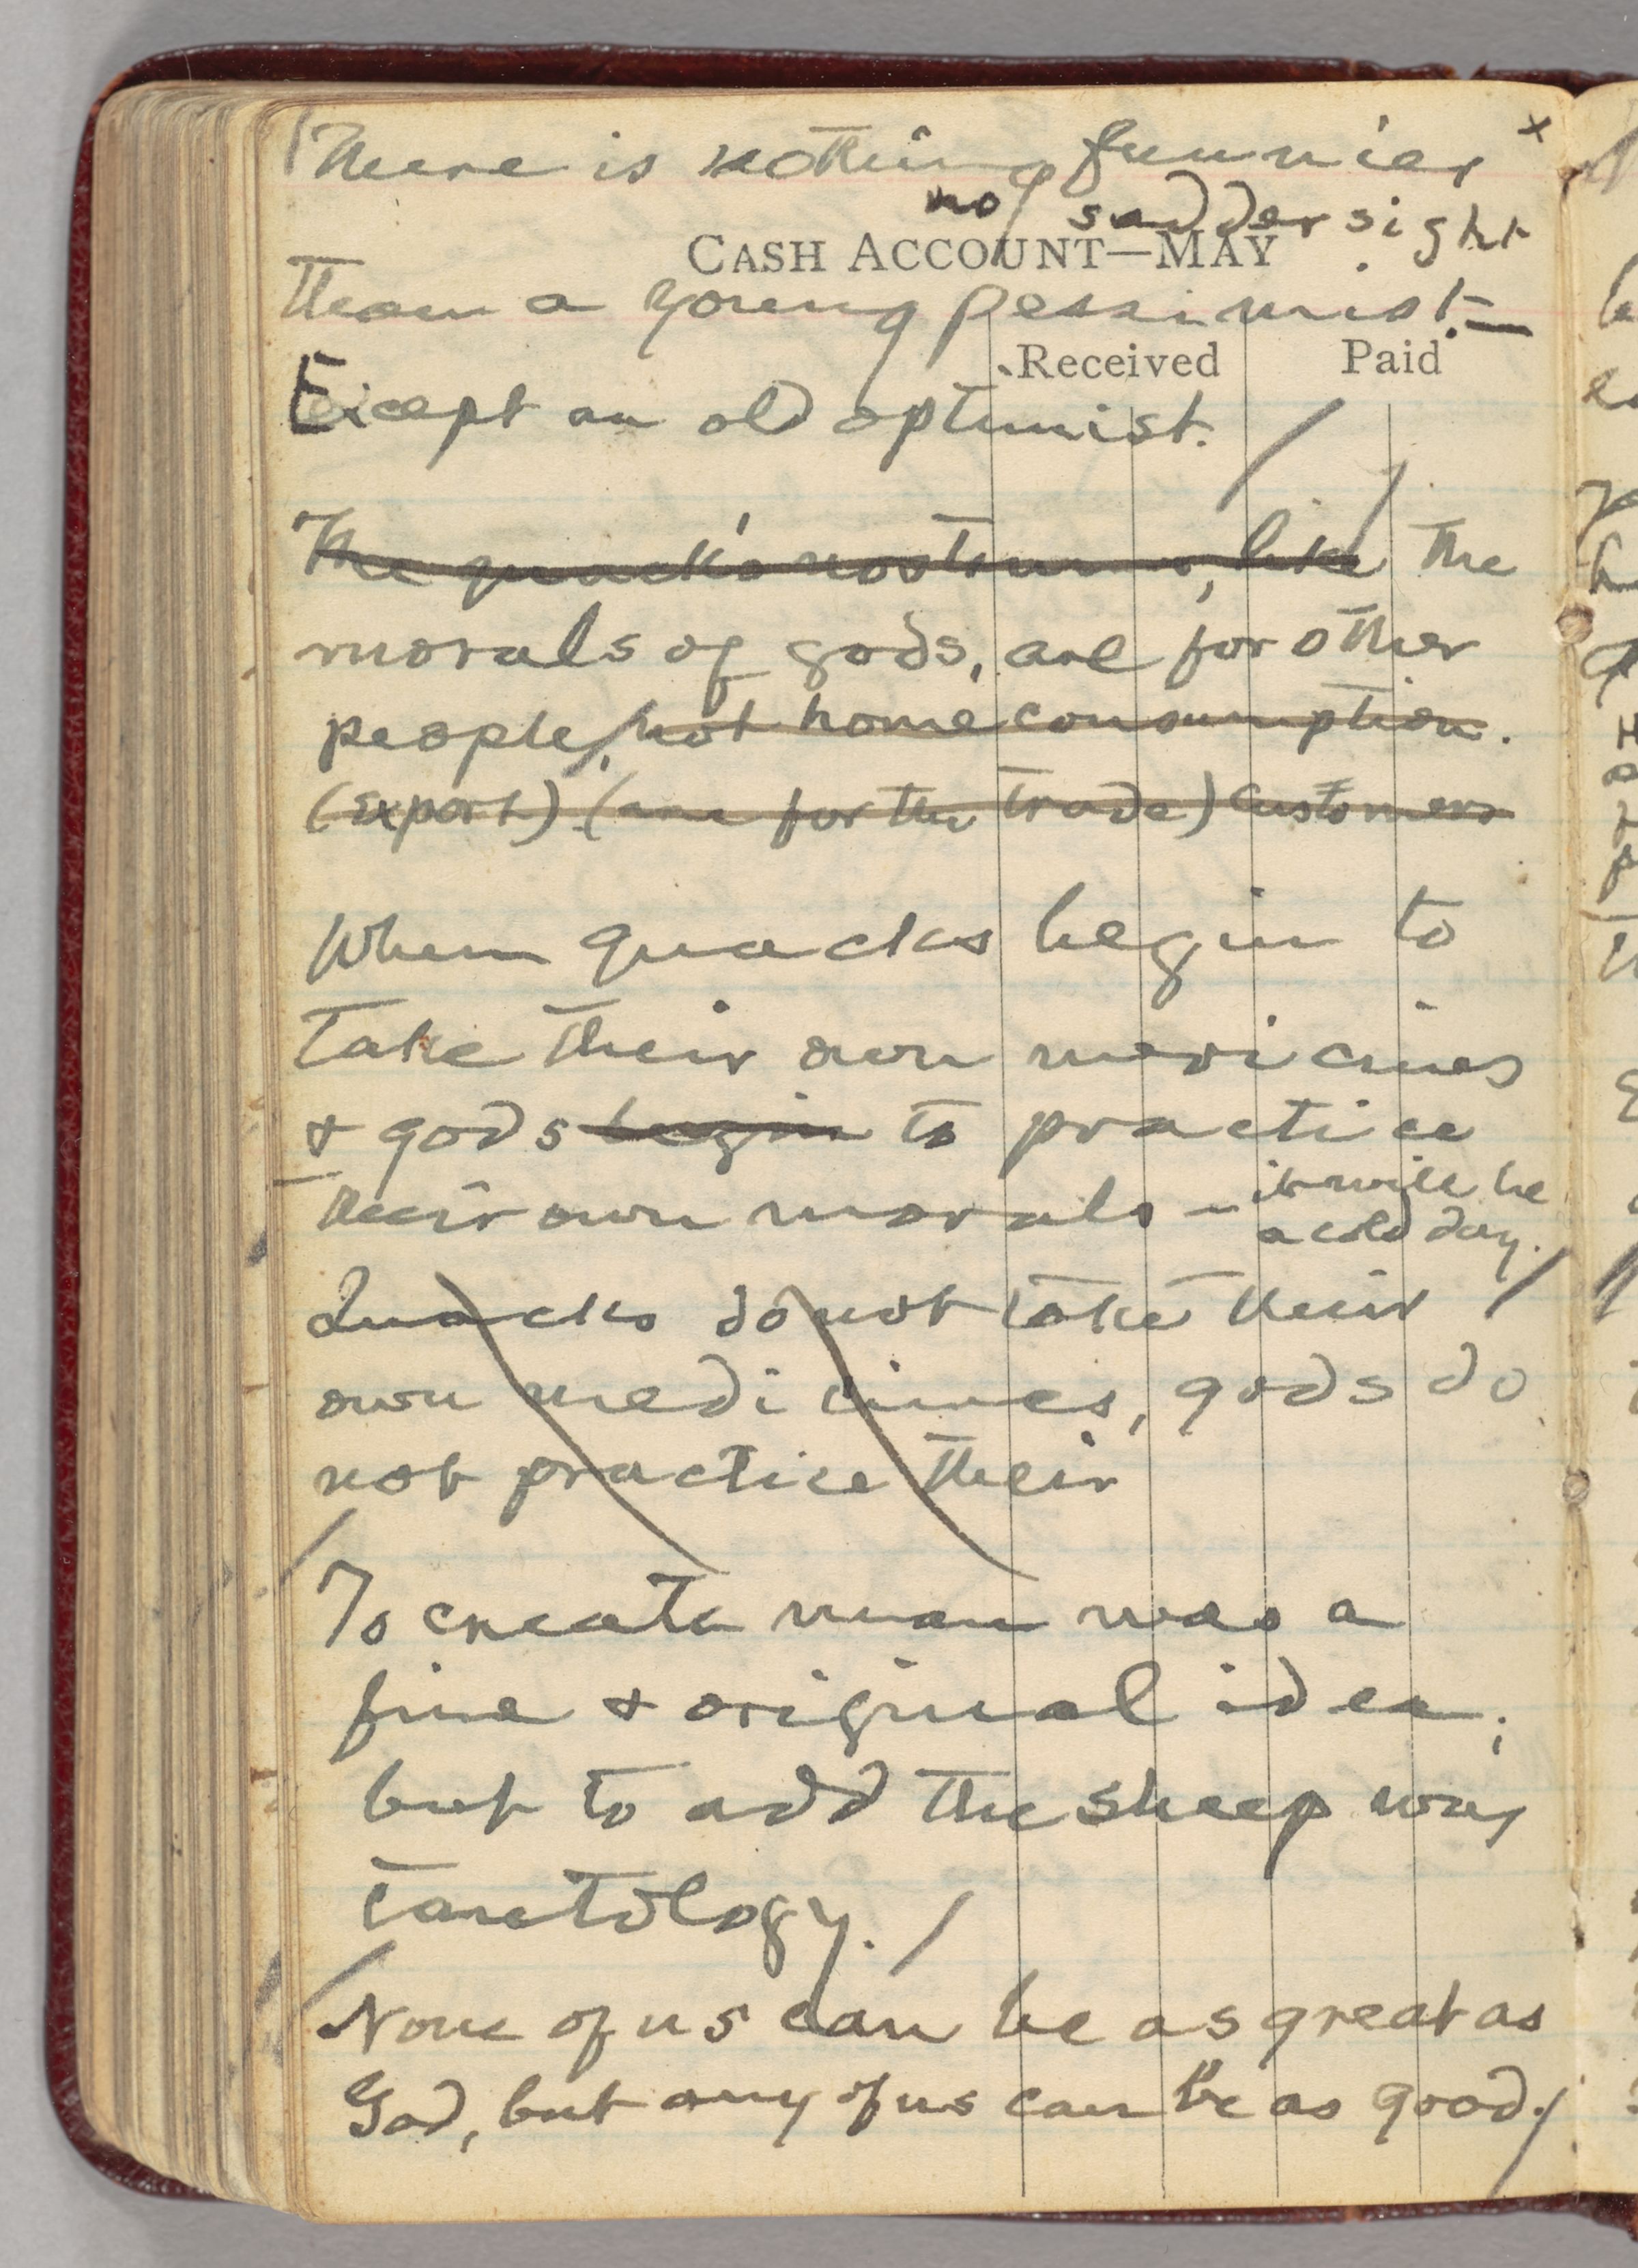 There is nothing funnier x
no sadder sight
CASH ACCOUNT—MAY
than a young pessimist.—
Received Paid
Except an old optimist.
The quack's nostrums, like the
morals of gods, are for other
people, not home consumption.
(Export) (are for the trade) customers
When quacks begin to
take their own medicines
& gods begin to practice
their own morals — it will be
a cold day.
Quacks do not take their
own medicines, gods do
not practice their
To create man was a
fine & original idea;
but to add the sheep was
tautology.
None of us can be as great as
God, but any of us can be as good.